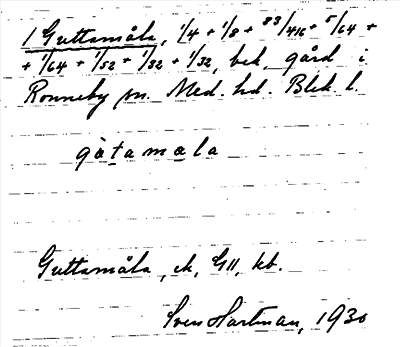 1 Guttamåla, 1/4 + 1/8 + 83/416 + 5/64 +
+ 1/64 + 1/52 + 1/32 + 1/32, bek. gård i
Ronneby sn. Med. hd. Blek. l.
gàtamàla
Guttamåla, ek, GII, kb.
Sven Hartman, 1930